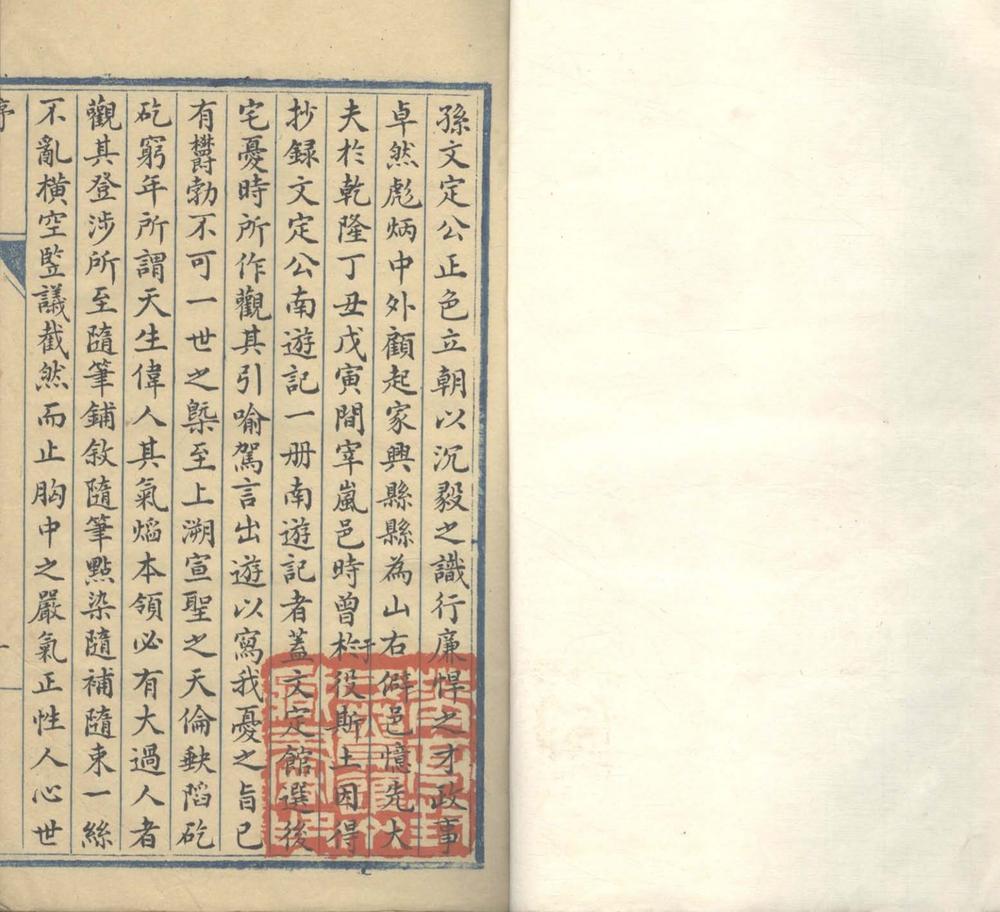 孫文定公正色立朝以沉毅之識行廉悍之才政事
卓然彪炳中外顧起家興縣縣為山右僻邑憶先大
夫於乾隆丁丑戊寅間宰嵐邑時曾於役斯土因得
抄録文定公南遊記一册南遊記者蓋文定館選後
宅憂時所作觀其引喻駕言出遊以寫我憂之旨已
有欝勃不可一世之槩至上溯宣聖之天倫缺䧟矻
矻窮年所謂天生偉人其氣熖本領必有大過人者
觀其登涉所至隨筆鋪敘隨筆點染隨補隨束一絲
不亂橫空竪議截然而止胸中之嚴氣正性人心世
序
一